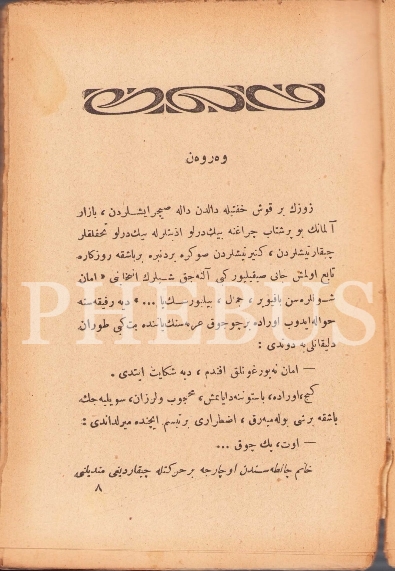 وەروەن
زوزك بر قوش خفتيله دالدن داله صيچرايشلردن ، بازار
آلمانك بو پرشتاب چراغنه بيك درلو اذيتلرله بيك درلو تحفلقلر
چيقارتيشلردن ، كنيرتيشلردن صوكره بردنبره باشقه روزكاره
تابع اولمش جانى صيقيليور كى آلنه‌جق شيلرك انتخابنى « امان
شونلره سن باقيوير ، جمال ، بيليورسك يا ... » ديه رفيقه‌سنه
حواله ايدوب اوراده بر چوجوق عربه‌سنك يانده طوران
دليقانلى‌يه دوندى :
— امان نه يورغونلق افندم ، ديه شكايت ايتدى .
كنج ، اوراده ، باستوننه دايانمش ، محجوب ولرزان ، سويليه‌جك
باشقه برشى بوله‌ميه‌رق ، اضطرارى بر تبسم ايچنده ميرلداندى :
— اوت ، پك چوق ...
خانم چانطه‌سندن اوچارجه بر حركتله چيقارديغى منديلنى
٨
PHEBUS